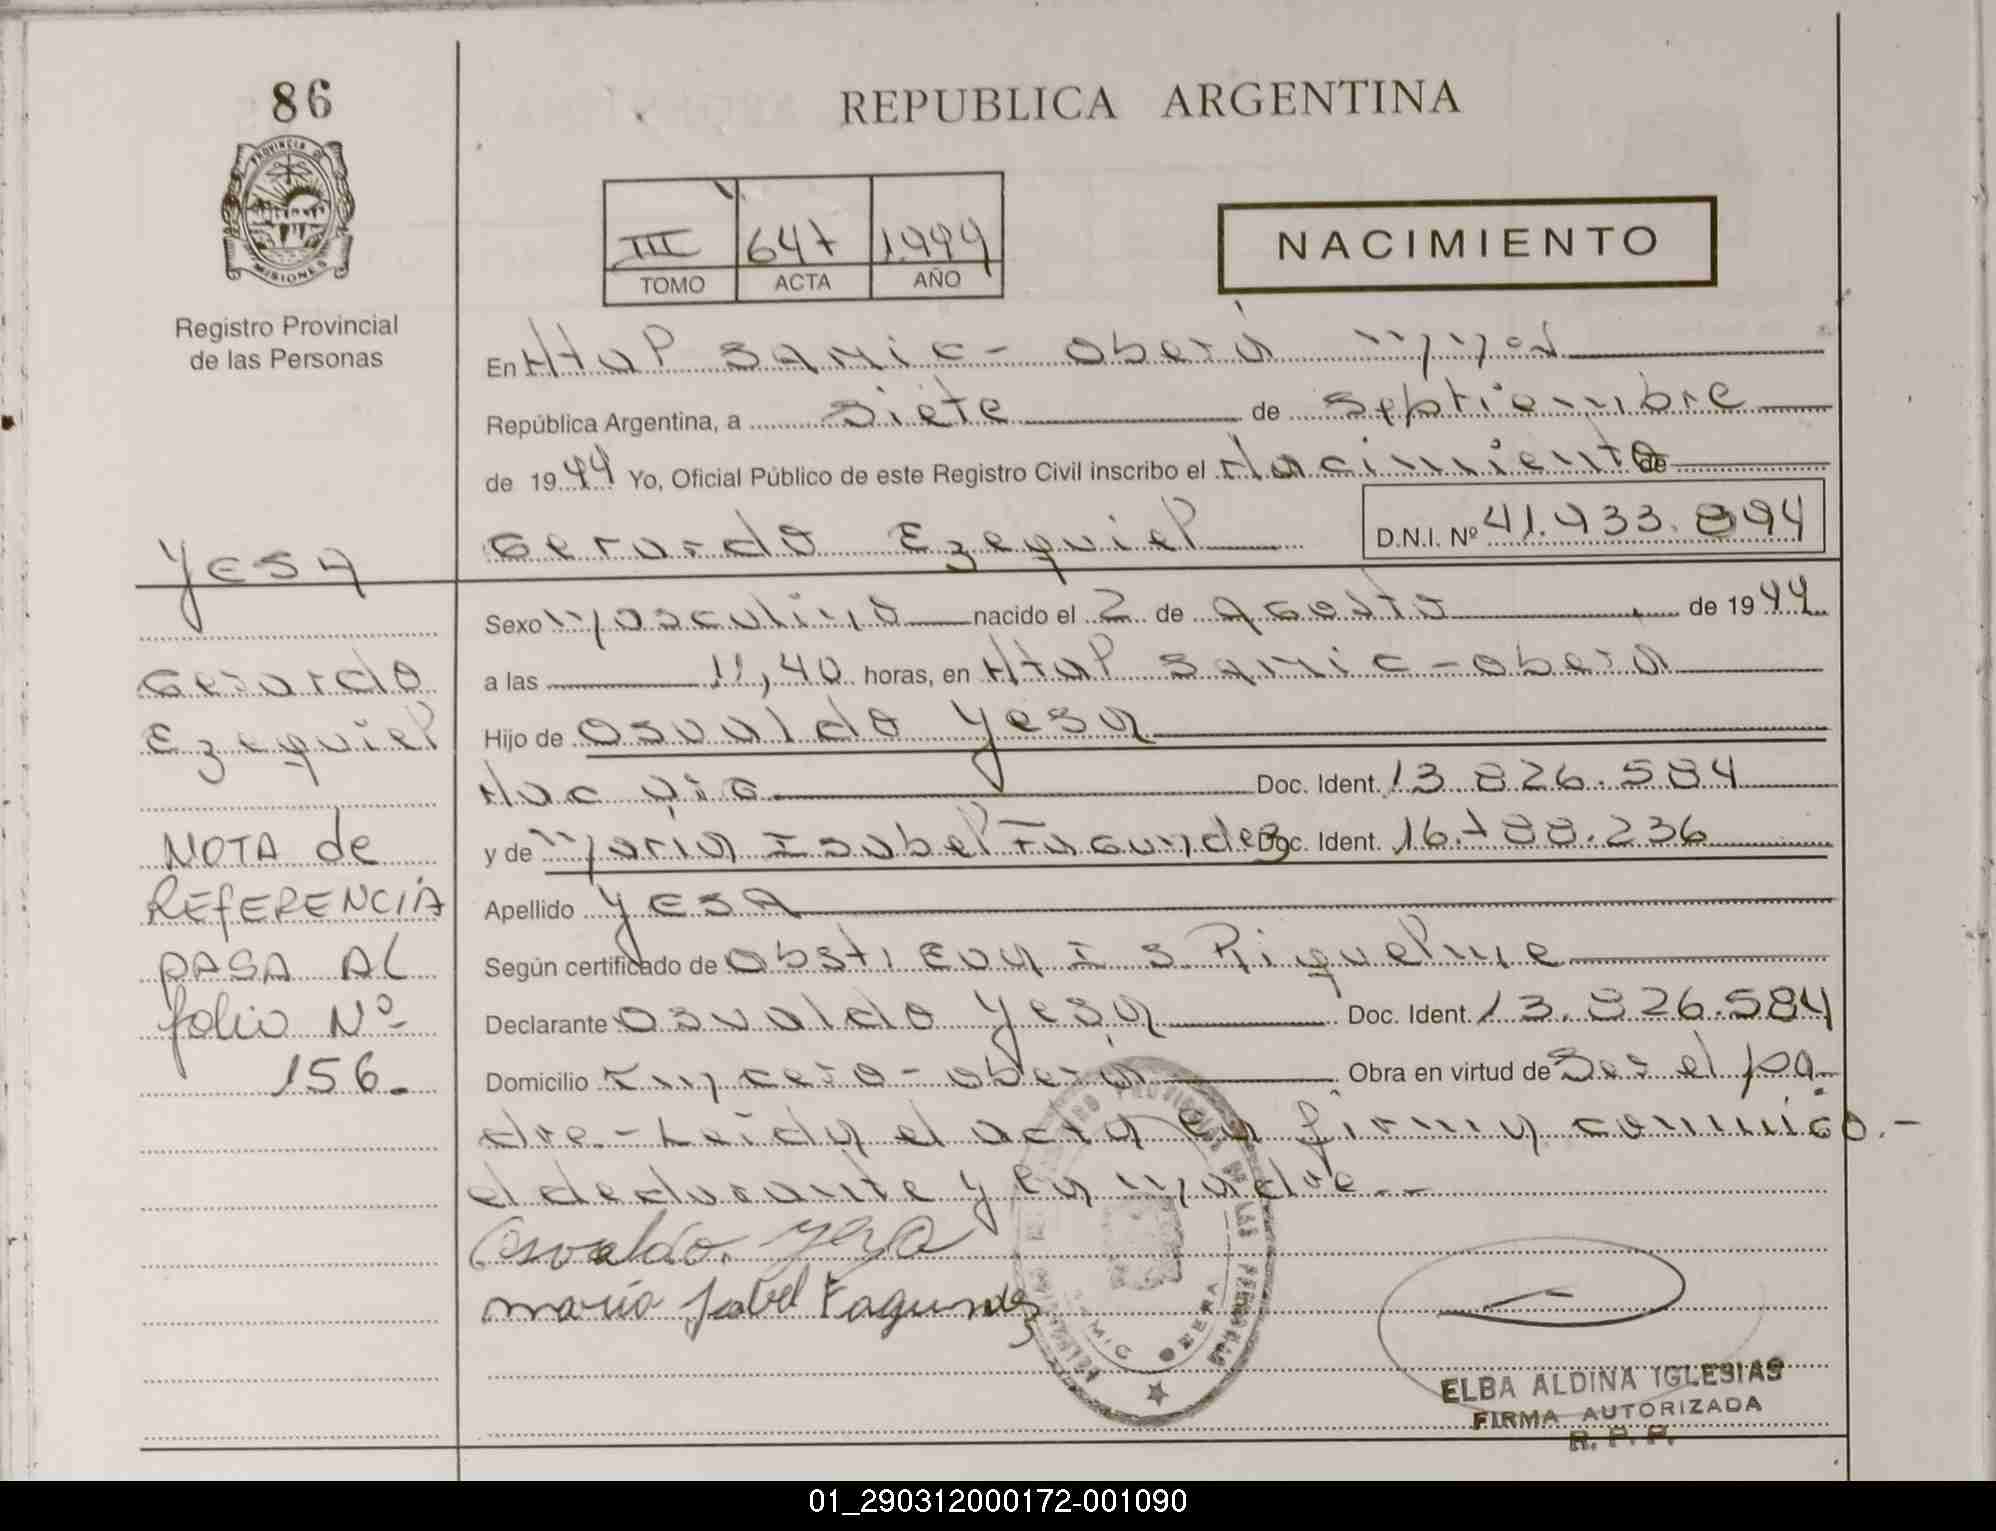 86
REPUBLICA ARGENTINA
PROVINCIA DE
MISIONES
Registro Provincial
de las Personas
III 647 1.999
TOMO ACTA AÑO
NACIMIENTO
En Htal SAMIC - Oberá Mnes
República Argentina, a siete de Septiembre
de 1999 Yo, Oficial Público de este Registro Civil inscribo el Nacimiento de
Gerardo Ezequiel D.N.I. Nº 41.933.894
YESA
Sexo Masculino nacido el 2 de Agosto de 1999
a las 11,40 horas, en Htal SAMIC - Oberá
Gerardo
Ezequiel
Hijo de Osvaldo Yesa
Doc. Ident. 13.826.584
y de María Isabel Fagundez Doc. Ident. 16.788.236
NOTA de
REFERENCIA
PASA AL
folio Nº
156.
Apellido YESA
Según certificado de Obst. Riquelme
Declarante Osvaldo Yesa Doc. Ident. 13.826.584
Domicilio - Oberá Obra en virtud de Ser el pa
dre.- Leída el acta la firma conmigo.-
el declarante y la madre.--
Osvaldo Yesa
maria Isabel Fagundez
REGISTRO PROVINCIAL DE LAS PERSONAS
SAMIC OBERA
MISIONES
ELBA ALDINA IGLESIAS
FIRMA AUTORIZADA
R. P. P.
01_290312000172-001090